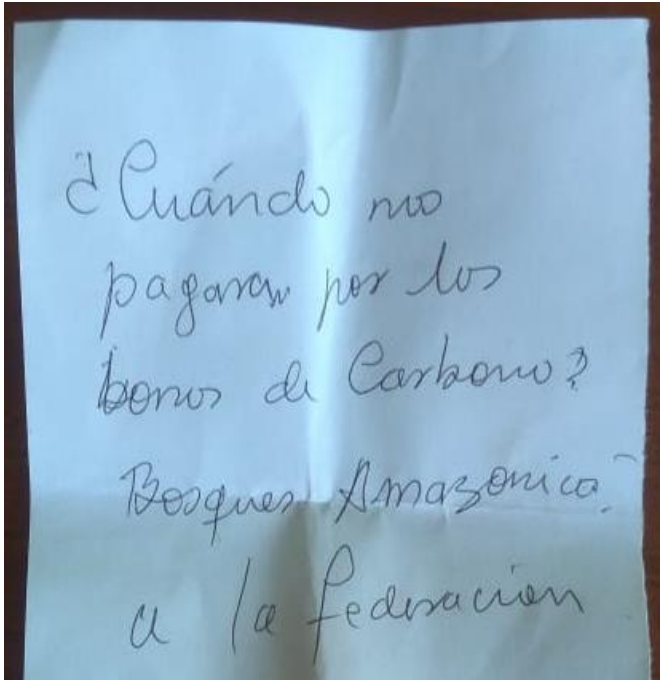 ¿Cuándo nos
pagaran por los
bonos de Carbono?
Bosques Amazonica
a la federacion